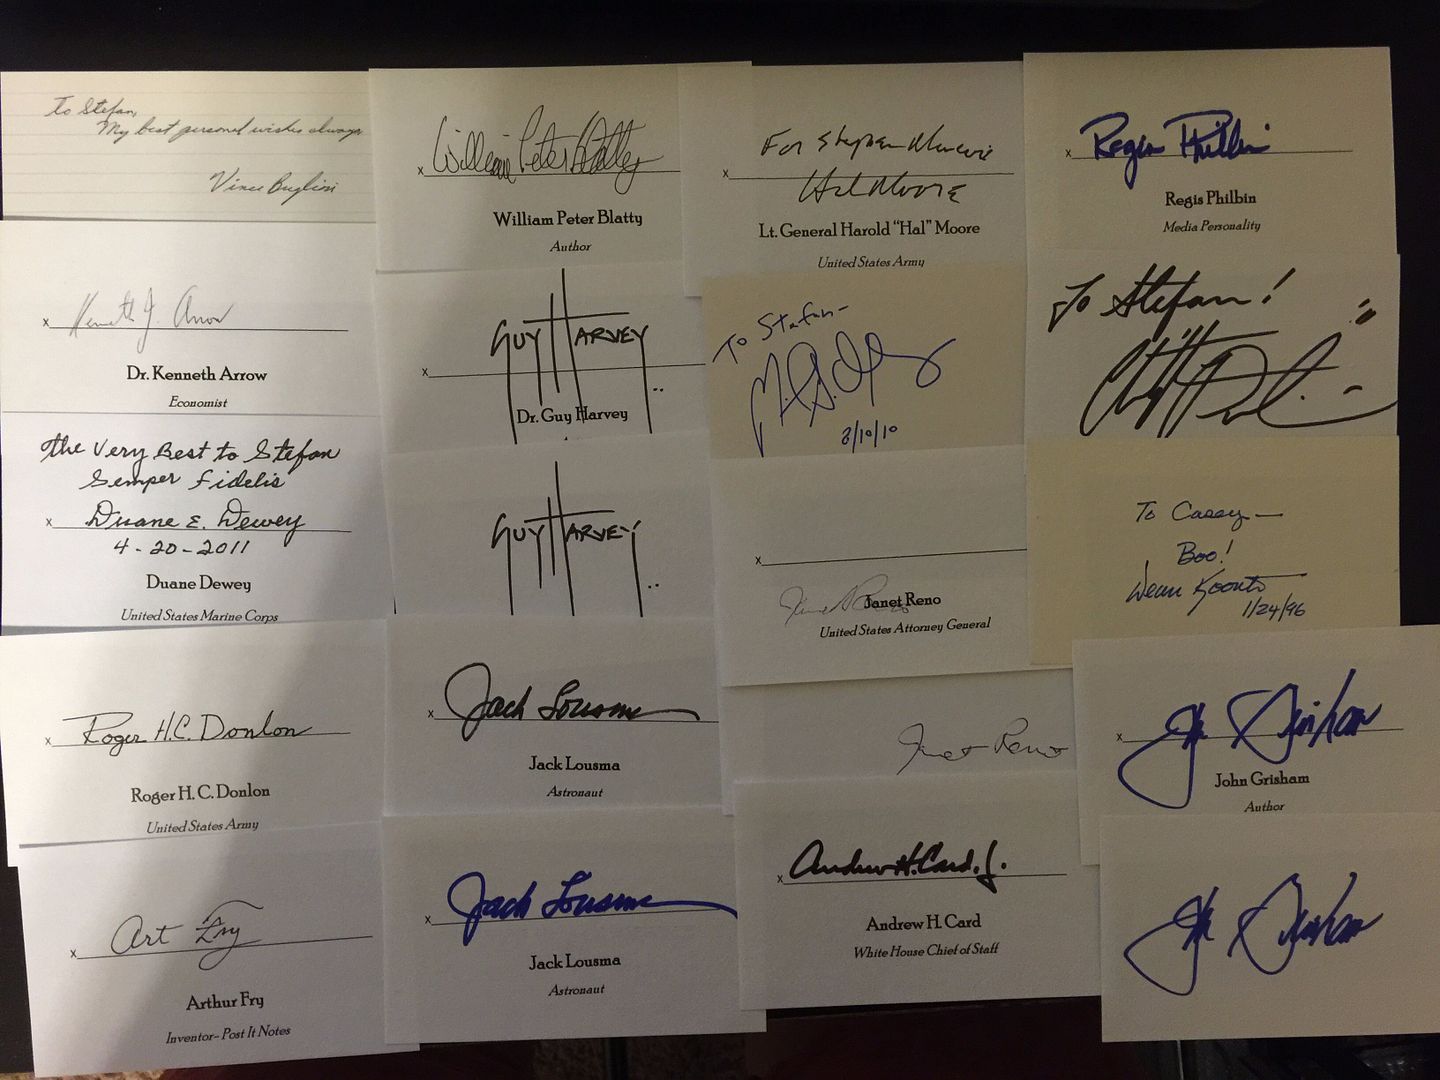 To Stefan,
My best personal wishes always
Vince Bugliosi
x Kenneth J. Arrow
Dr. Kenneth Arrow
Economist
The Very Best to Stefan
Semper Fidelis
x Duane E. Dewey
4-20-2011
Duane Dewey
United States Marine Corps
x Roger H.C. Donlon
Roger H. C. Donlon
United States Army
x Art Fry
Arthur Fry
Inventor- Post It Notes
x William Peter Blatty
William Peter Blatty
Author
GUY HARVEY
x
Dr. Guy Harvey
GUY HARVEY
x Jack Lousma
Jack Lousma
Astronaut
x Jack Lousma
Jack Lousma
Astronaut
For Stephen
x
Hal Moore
Lt. General Harold "Hal" Moore
United States Army
To Stefan-
2/10/10
x
Janet Reno
Janet Reno
United States Attorney General
Janet Reno
x Andrew H. Card, Jr.
Andrew H. Card
White House Chief of Staff
x Regis Philbin
Regis Philbin
Media Personality
To Stefan!
To Casey—
Boo!
Dean Koontz
1/24/96
x John Grisham
John Grisham
Author
John Grisham